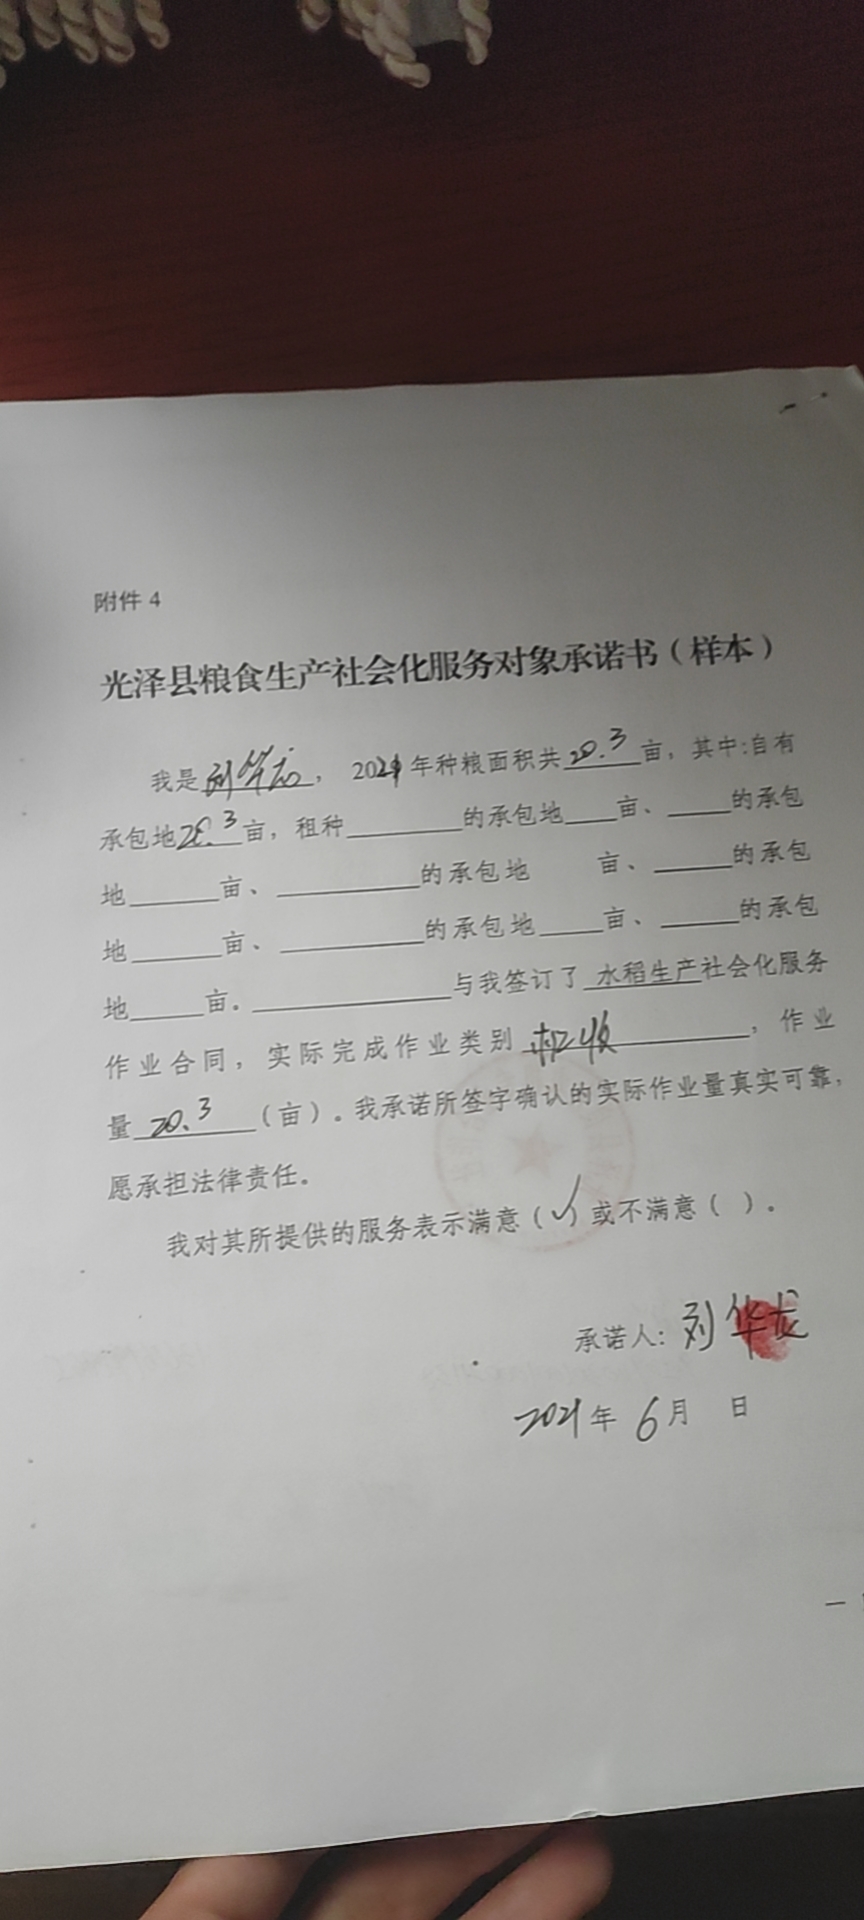 附件 4
光泽县粮食生产社会化服务对象承诺书（样本）
我是刘华龙， 2021年种粮面积共 20.3 亩，其中:自有
承包地20.3亩，租种________的承包地____亩、____的承包
地______亩、__________的承包地 亩、_____的承包
地______亩、__________的承包地____亩、_____的承包
地_____亩。_____________与我签订了 水稻生产社会化服务
作业合同，实际完成作业类别 机收 ，作业
量 20.3 （亩）。我承诺所签字确认的实际作业量真实可靠，
愿承担法律责任。
我对其所提供的服务表示满意（✓）或不满意（ ）。
承诺人：刘华龙
2021年 6月 日